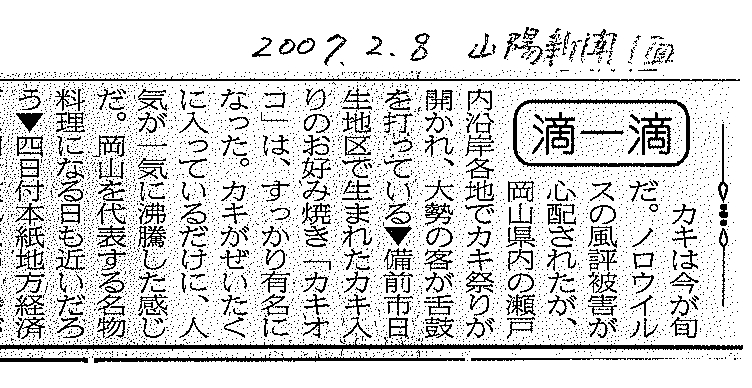 2007.2.8 山陽新聞 1面
滴一滴
カキは今が旬
だ。ノロウイル
スの風評被害が
心配されたが、
岡山県内の瀬戸
内沿岸各地でカキ祭りが
開かれ、大勢の客が舌鼓
を打っている▼備前市日
生地区で生まれたカキ入
りのお好み焼き「カキオ
コ」は、すっかり有名に
なった。カキがぜいたく
に入っているだけに、人
気が一気に沸騰した感じ
だ。岡山を代表する名物
料理になる日も近いだろ
う▼四日付本紙地方経済